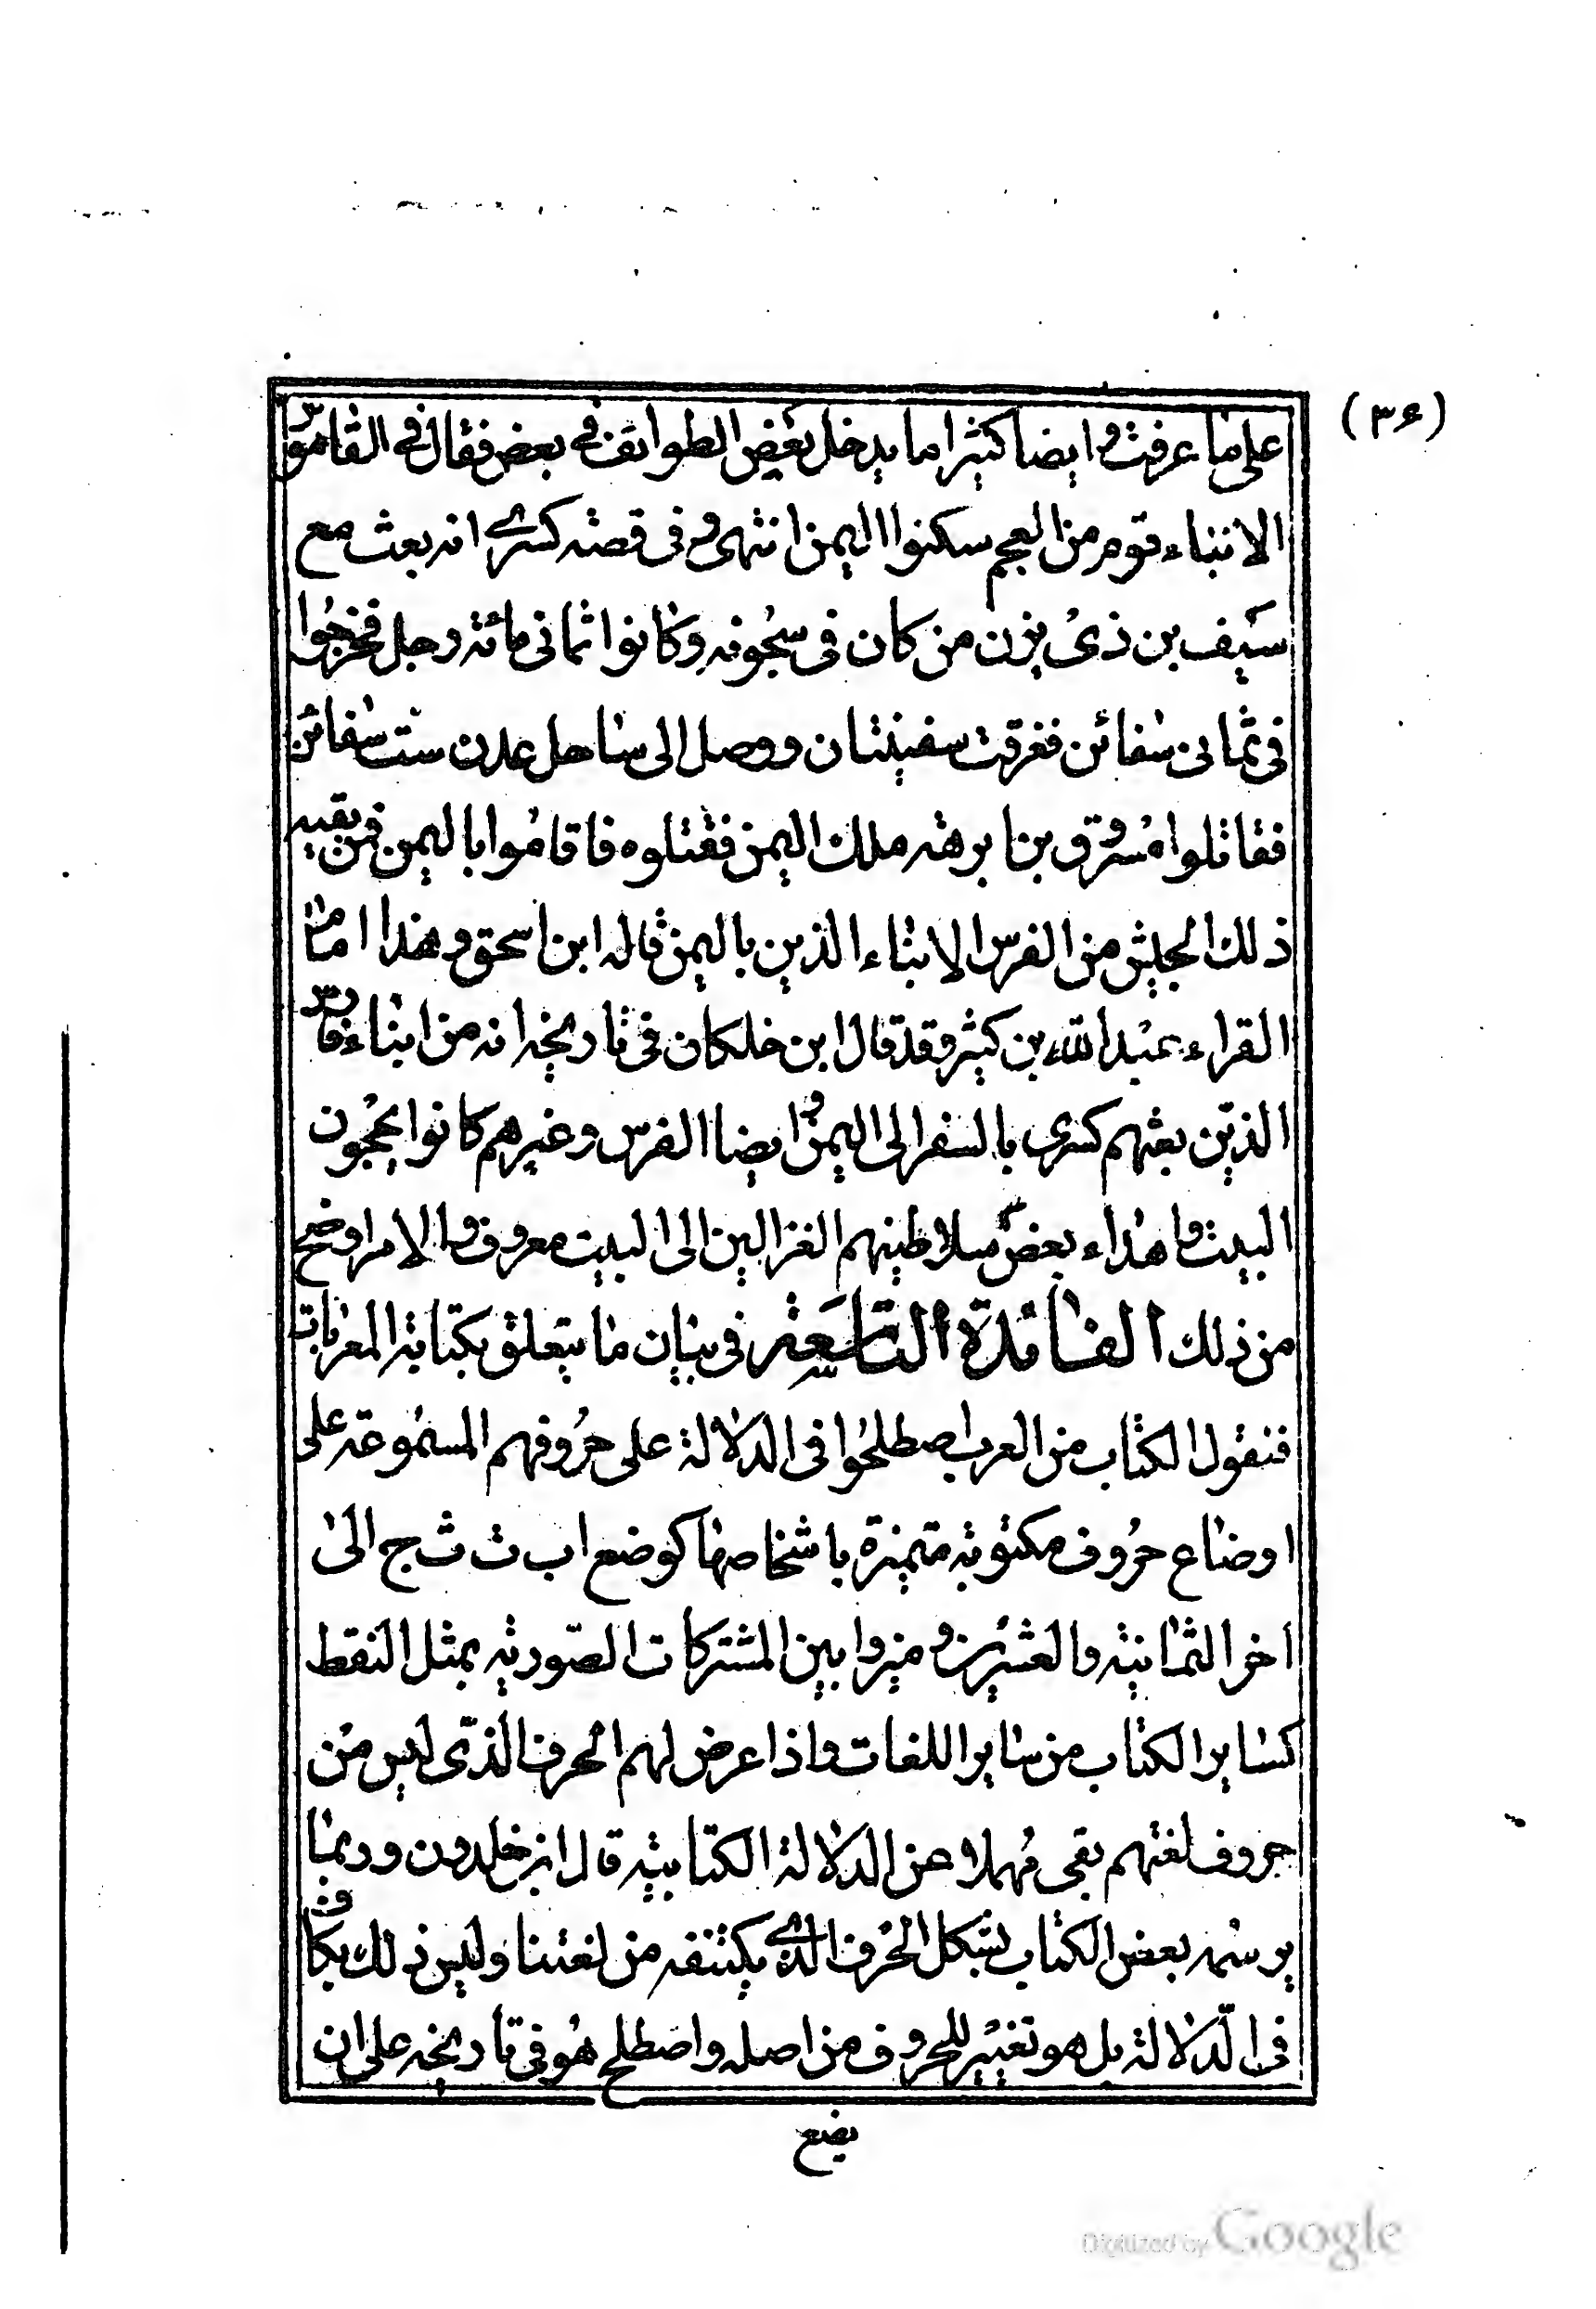 (٣۶)
على ما عرفت و ايضا كثيرا ما يدخل بعض الطوايف في بعض فقال في القاموس
الابناء قوم من العجم سكنوا اليمن انتهى و في قصته كسرى انه بعث مع
سيف بن ذى يزن من كان في سجونه وكانوا ثمانى مائة رجل فخرجوا
في ثمانى سفائن فغرقت سفينتان و وصل الى ساحل عدن ست سفائن
فقاتلوا مسروق بن ابرهة ملك اليمن فقتلوه فاقاموا باليمن فمن بقيه
ذلك الجيش من الفرس الابناء الذين باليمن قاله ابن اسحق و هذا امام
القراء عبد الله بن كثير و قد قال ابن خلكان في تاريخه انه من ابناء فارس
الذين بعثهم كسرى بالسفر الى اليمن و ايضا الفرس و غيرهم كانوا يحجون
البيت و اهداء بعض سلاطينهم الغزالين الى البيت معروف و الامر اوضح
من ذلك الفائدة التاسعة في بيان ما يتعلق بكتابة المعربات
فنقول الكتاب من العرب اصطلحوا في الدلالة على حروفهم المسموعة على
اوضاع حروف مكتوبة متميزة باشخاصها كوضع ا ب ت ث ج الى
اخر الثمانية و العشرين و ميزوا بين المشتركات الصورية بمثل النقط
كساير الكتاب من ساير اللغات و اذا عرض لهم الحرف الذى ليس من
حروف لغتهم بقى مهملا عن الدلالة الكتابية قال ابن خلدون و ربما
يرسمه بعض الكتاب بشكل الحرف الذى يكتنفه من لغتنا و ليس ذلك بكاف
في الدلالة بل هو تغيير للحروف من اصله و اصطلح هو في تاريخه على ان
يضع
Digitized by Google